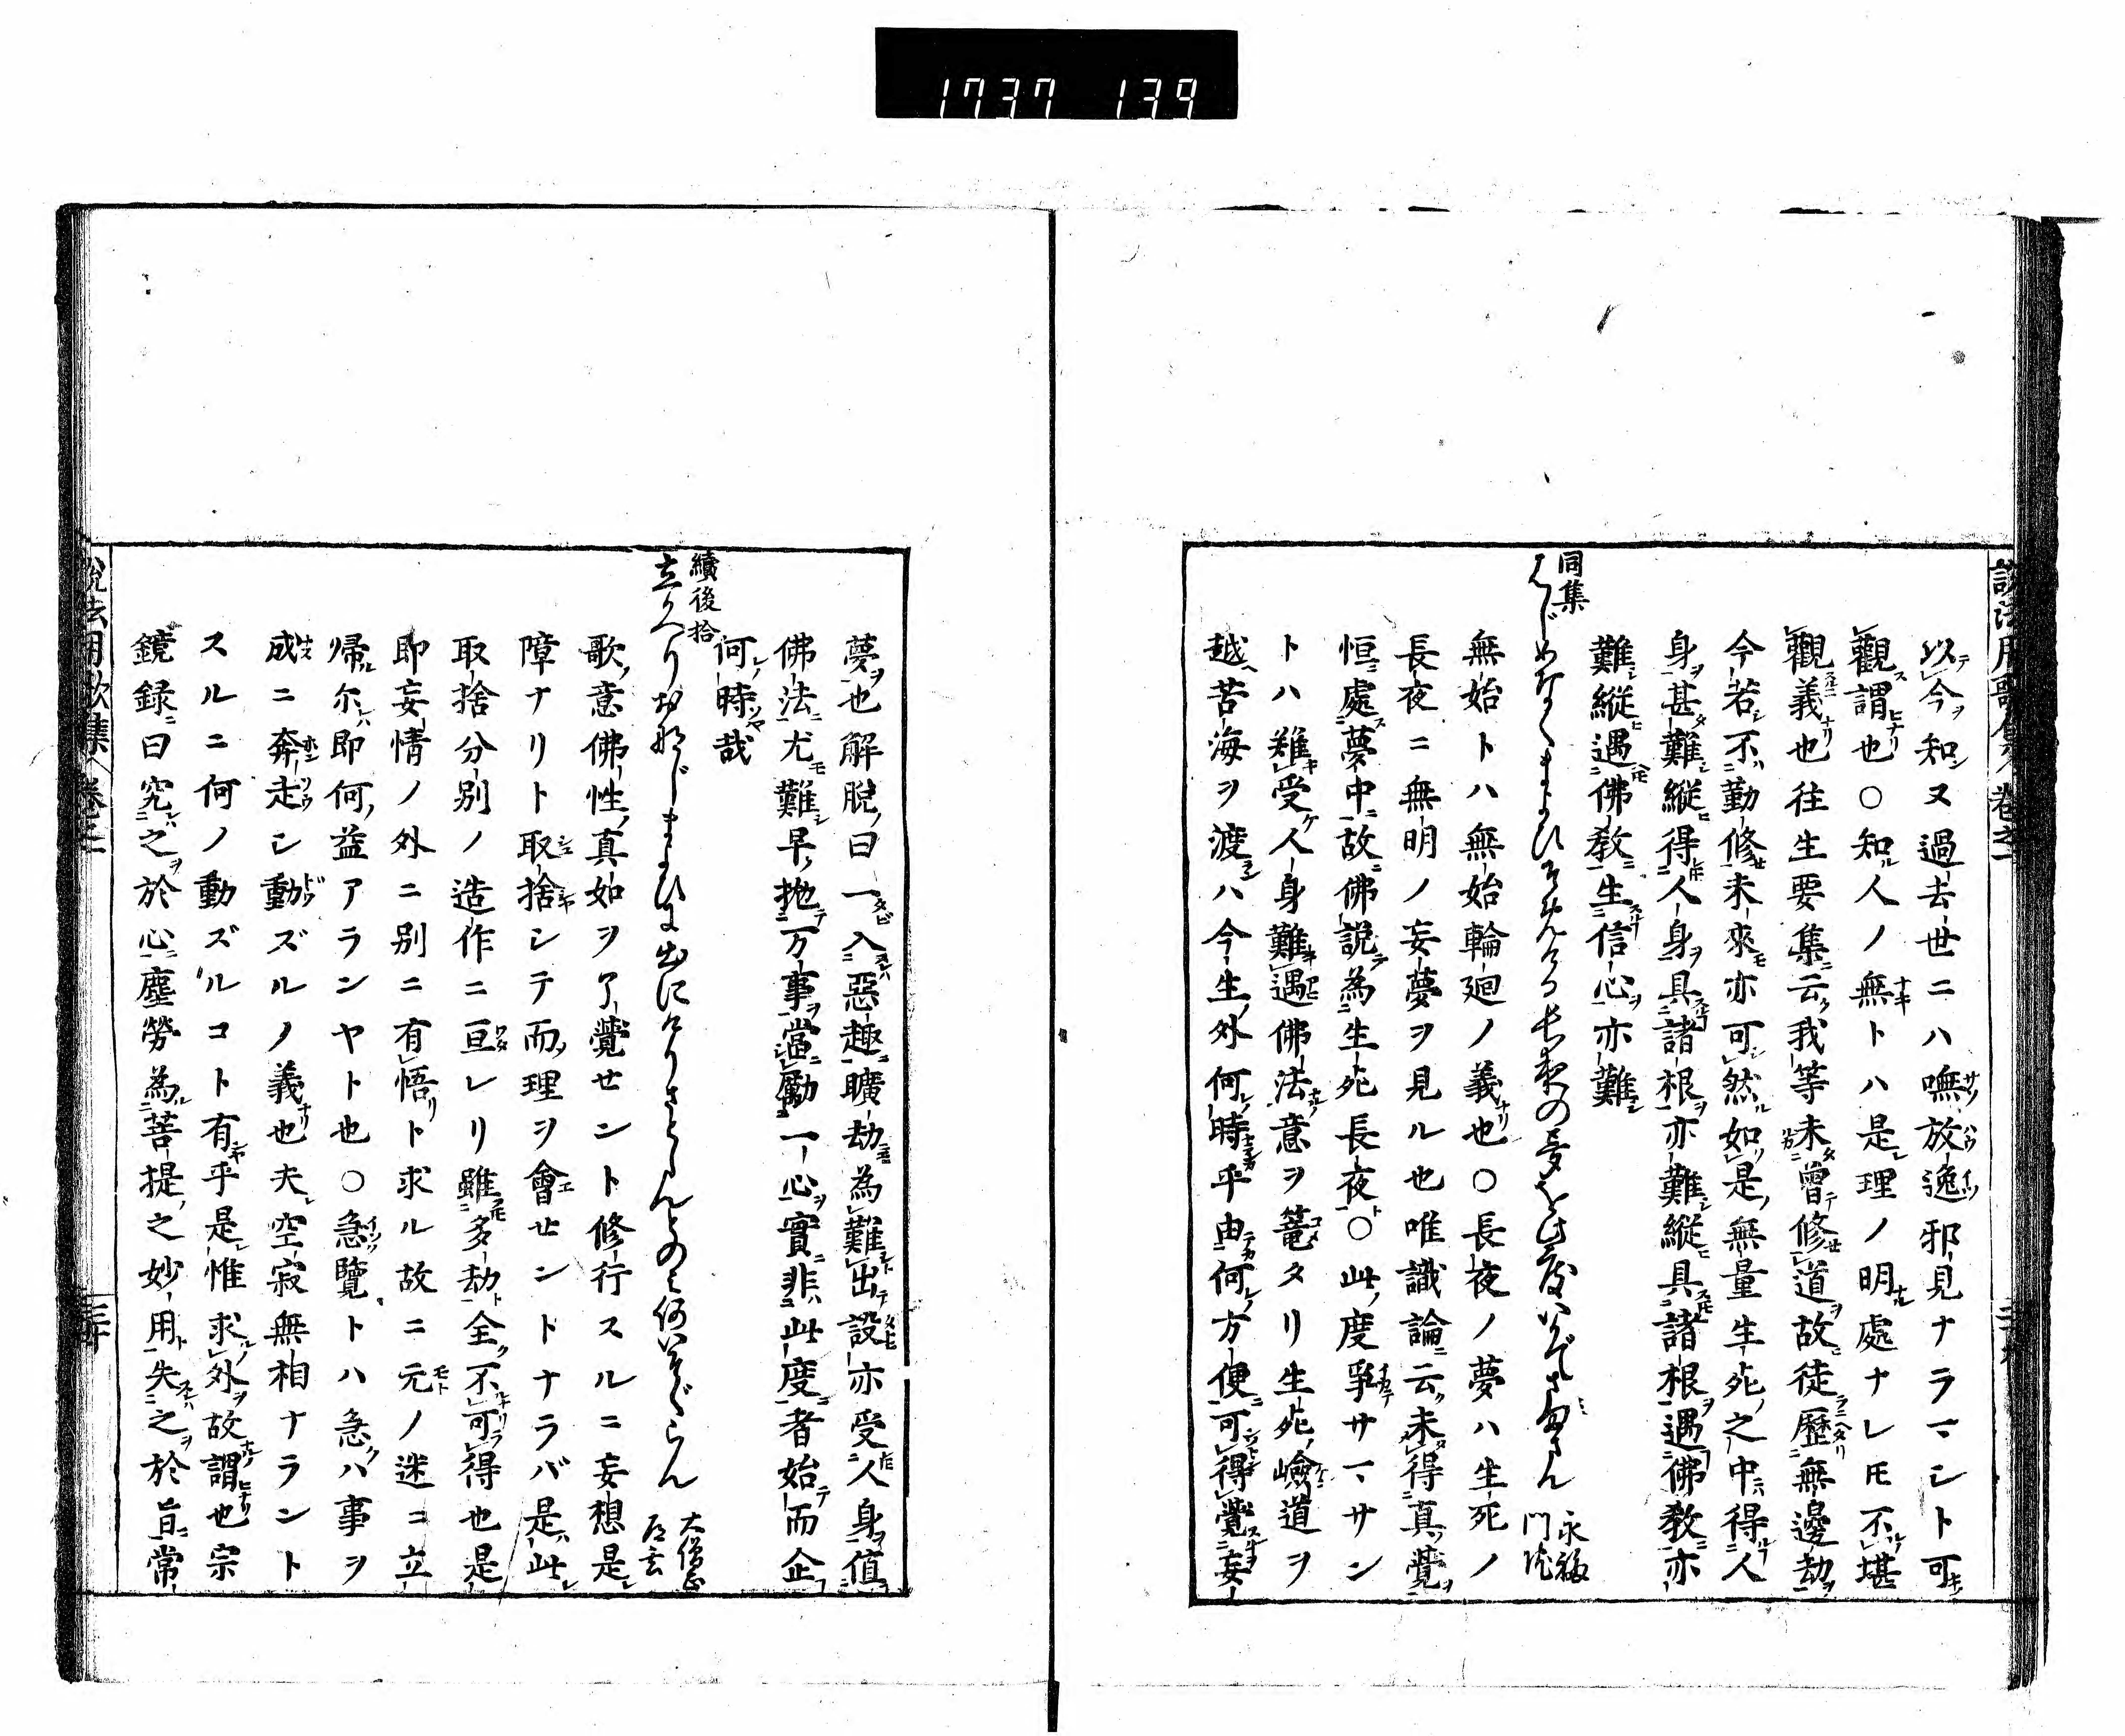 1737 139
以今知又過去世ニハ嘸放逸邪見ナラマシト可
觀謂也○知人ノ無トハ是理ノ明處ナレモ不堪
觀義也往生要集云我等未曾修道故徒歷無邊劫
今若不勤修未來亦可然如是無量生死之中得人
身甚難縱得人身具諸根亦難縱具諸根遇佛教亦
難縱遇佛教生信心亦難
同集
永福門院
無始トハ無始輪廻ノ義也○長夜ノ夢ハ生死ノ
長夜ニ無明ノ妄夢ヲ見ル也唯識論云未得真覺
恒處夢中故佛說為生死長夜○此度爭サマサン
トハ難受人身難遇佛法意ヲ篭タリ生死嶮道ヲ
越苦海ヲ渡ハ今生外何時乎由何方便可得覺妄
夢也解脫曰一入惡趣曠劫為難出設亦受人身値
佛法尤難早抛万事當勵一心實非此度者始而企
何時哉
續後拾
立かへり おなじまよひに出にけりさとらんとのみ何いそぐらん
大僧正道玄
歌意佛性真如ヲ了覺せント修行スルニ妄想是
障ナリト取捨シテ而理ヲ會せントナラバ是此
取捨分別ノ造作ニ亘レリ雖多劫全不可得也是
即妄情ノ外ニ別ニ有悟ト求ル故ニ元ノ迷ニ立
帰尓即何益アランヤト也○急覽トハ急ハ事ヲ
成ニ奔走シ動ズルノ義也夫空寂無相ナラント
スルニ何ノ動ズルコト有乎是惟求外故謂也宗
鏡録曰究之於心塵勞為菩提之妙用失之於旨常
說法用歌集 卷之二 三十